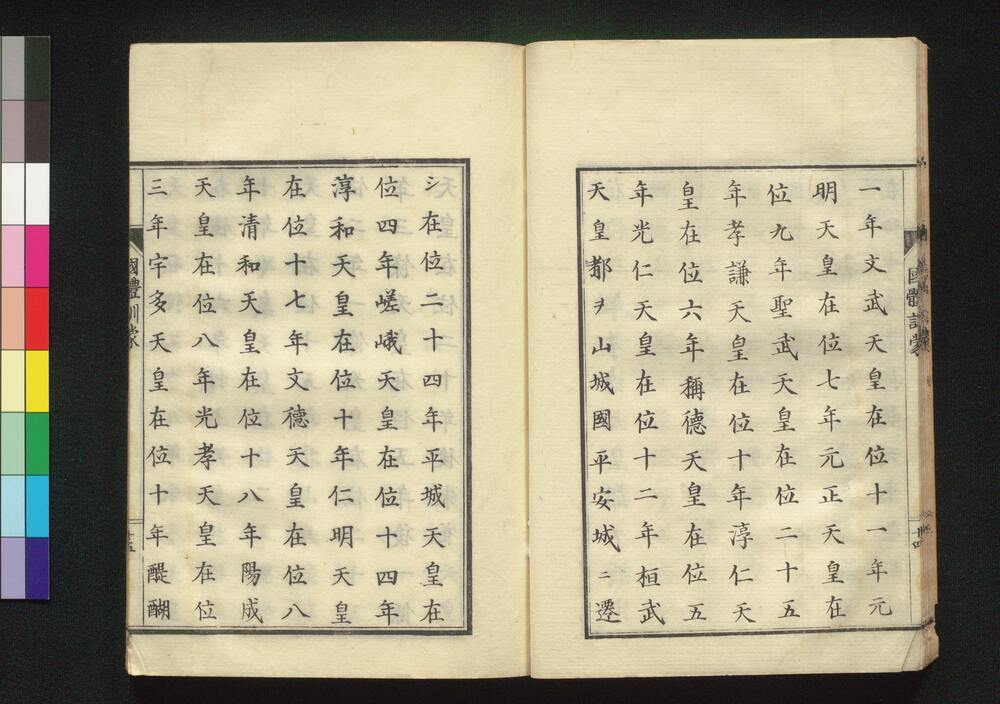 一年文武天皇在位十一年元
明天皇在位七年元正天皇在
位九年聖武天皇在位二十五
年孝謙天皇在位十年淳仁天
皇在位六年稱德天皇在位五
年光仁天皇在位十二年桓武
天皇都ヲ山城國平安城ニ遷
シ在位二十四年平城天皇在
位四年嵯峨天皇在位十四年
淳和天皇在位十年仁明天皇
在位十七年文德天皇在位八
年清和天皇在位十八年陽成
天皇在位八年光孝天皇在位
三年宇多天皇在位十年醍醐
國體訓蒙
十五